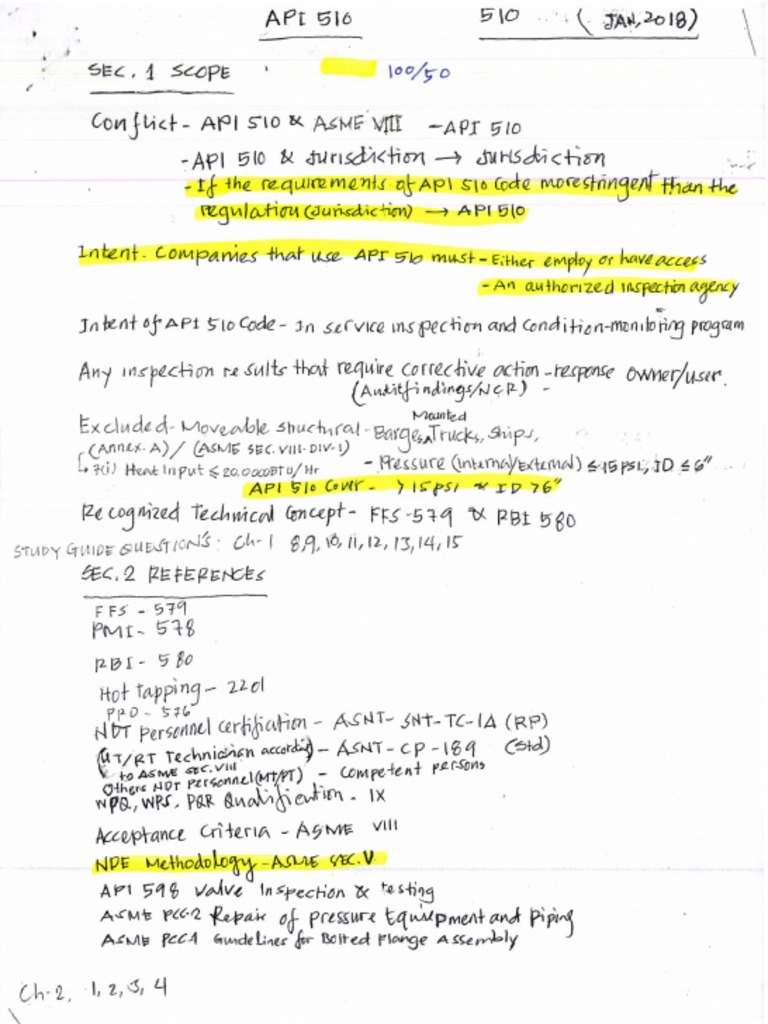 API 510 510 (JAN, 2018)
SEC. 1 SCOPE 100/50
Conflict - API 510 & ASME VIII - API 510
- API 510 & Jurisdiction → Jurisdiction
- If the requirements of API 510 Code morestringent than the
regulation (Jurisdiction) → API 510
Intent. Companies that use API 510 must - Either employ or have access
- An authorized inspection agency
Intent of API 510 Code - In service inspection and condition-monitoring program
Any inspection results that require corrective action - response owner/user.
(Auditfindings/NCR) -
Excluded - Moveable structural - Barges, Mounted Trucks, Ships,
(Annex. A) / (ASME SEC. VIII - DIV-1)
↳ 7(i) Heat Input ≤ 20,000 BTU/Hr - Pressure (Internal/External) ≤ 15 PSI, ID ≤ 6"
API 510 Cover - > 15 PSI & ID > 6"
Recognized Technical Concept - FFS-579 & RBI 580
STUDY GUIDE QUESTIONS: Ch-1 8,9,10,11,12,13,14,15
SEC. 2 REFERENCES
FFS - 579
PMI - 578
RBI - 580
Hot tapping - 2201
PRD - 576
NDT personnel certification - ASNT- SNT-TC-1A (RP)
(UT/RT Technician according - ASNT-CP-189 (Std)
to ASME SEC. VIII)
Others NDT Personnel (MT/PT) - Competent persons
WPQ, WPS, PQR Qualification - IX
Acceptance Criteria - ASME VIII
NDE Methodology - ASME SEC. V
API 598 Valve Inspection & testing
ASME PCC-2 Repair of pressure Equipment and Piping
ASME PCC1 Guidelines for Bolted Flange Assembly
Ch-2, 1, 2, 3, 4